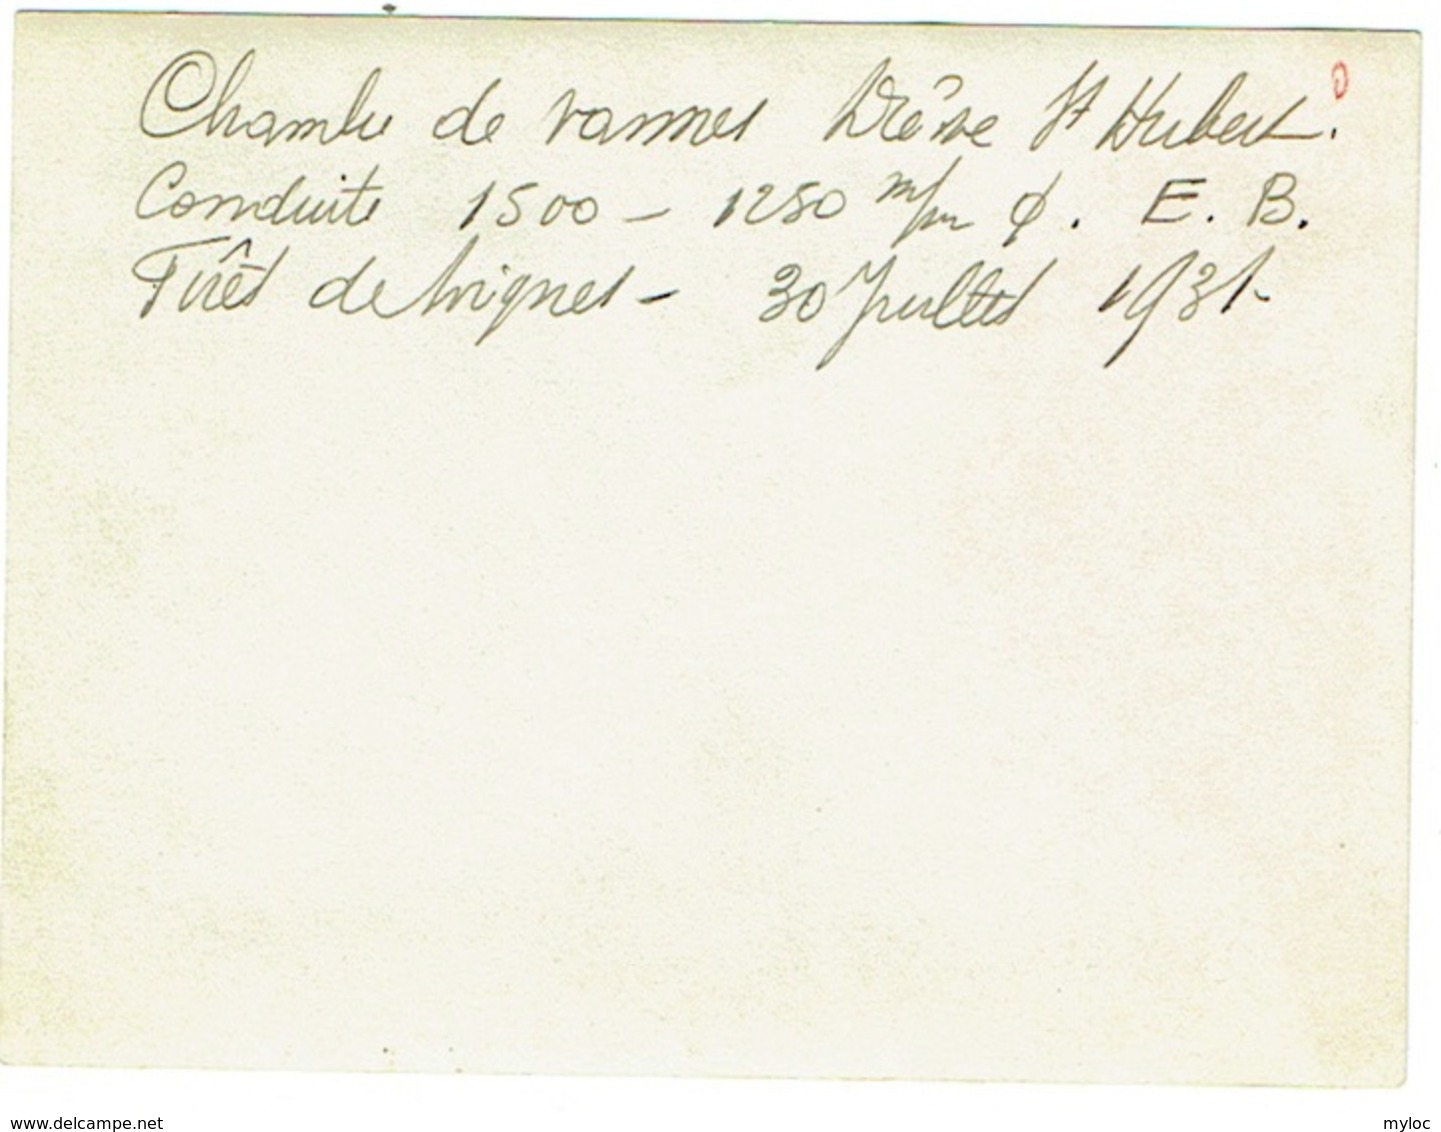 Chambre de vannes Drève St Hubert.
Conduite 1500 – 1250 m/m ϕ. E. B.
Forêt de Soignes – 30 Juillet 1931
www.delcampe.net
myloc